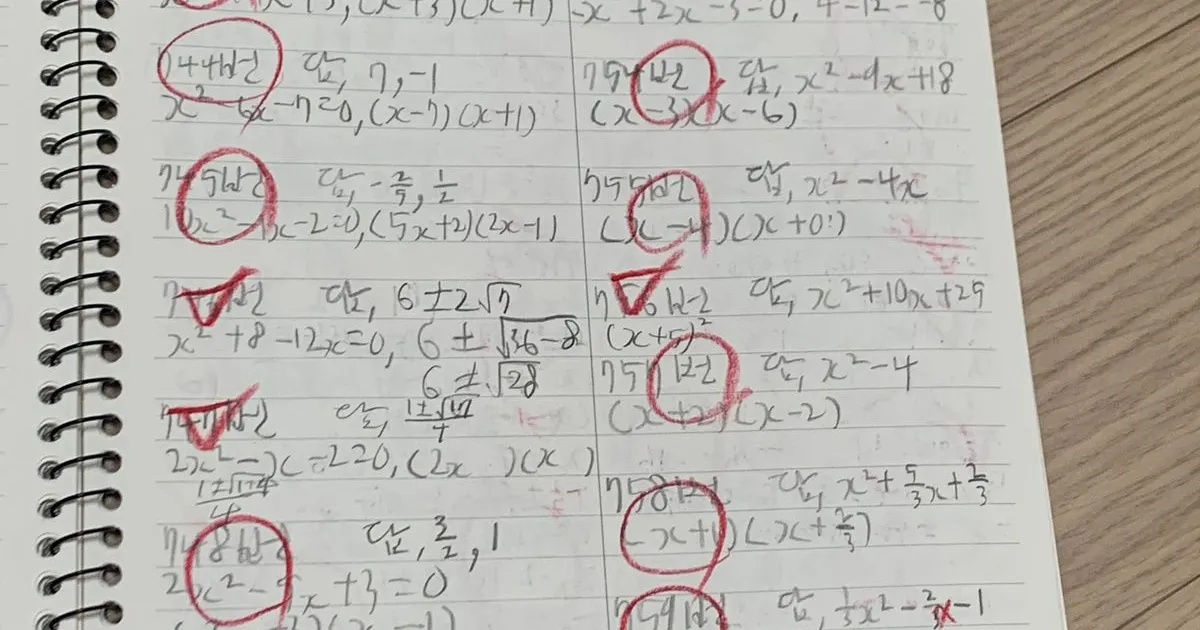 (x+3)(x+1)
744번 답, 7, -1
x²-6x-7=0, (x-7)(x+1)
745번 답, -2/5, 1/2
10x²-x-2=0, (5x+2)(2x-1)
답, 6±2√7
x²+8-12x=0, 6±√36-8
6±√28
747번 답, 1±√17/4
2x²-x-2=0, (2x )(x )
748번 답, 3/2, 1
2x²- x+3=0
-x +2x-3=0, 4-12=-8
754번 답, x²-9x+18
(x-3)(x-6)
755번 답, x²-4x
(x-4)(x+0)
756번 답, x²+10x+25
(x+5)²
757번 답, x²-4
(x+2)(x-2)
758번 답, x²+5/3x+2/3
(x+1)(x+2/3)
759번 답, 1/3x²-2/3x-1